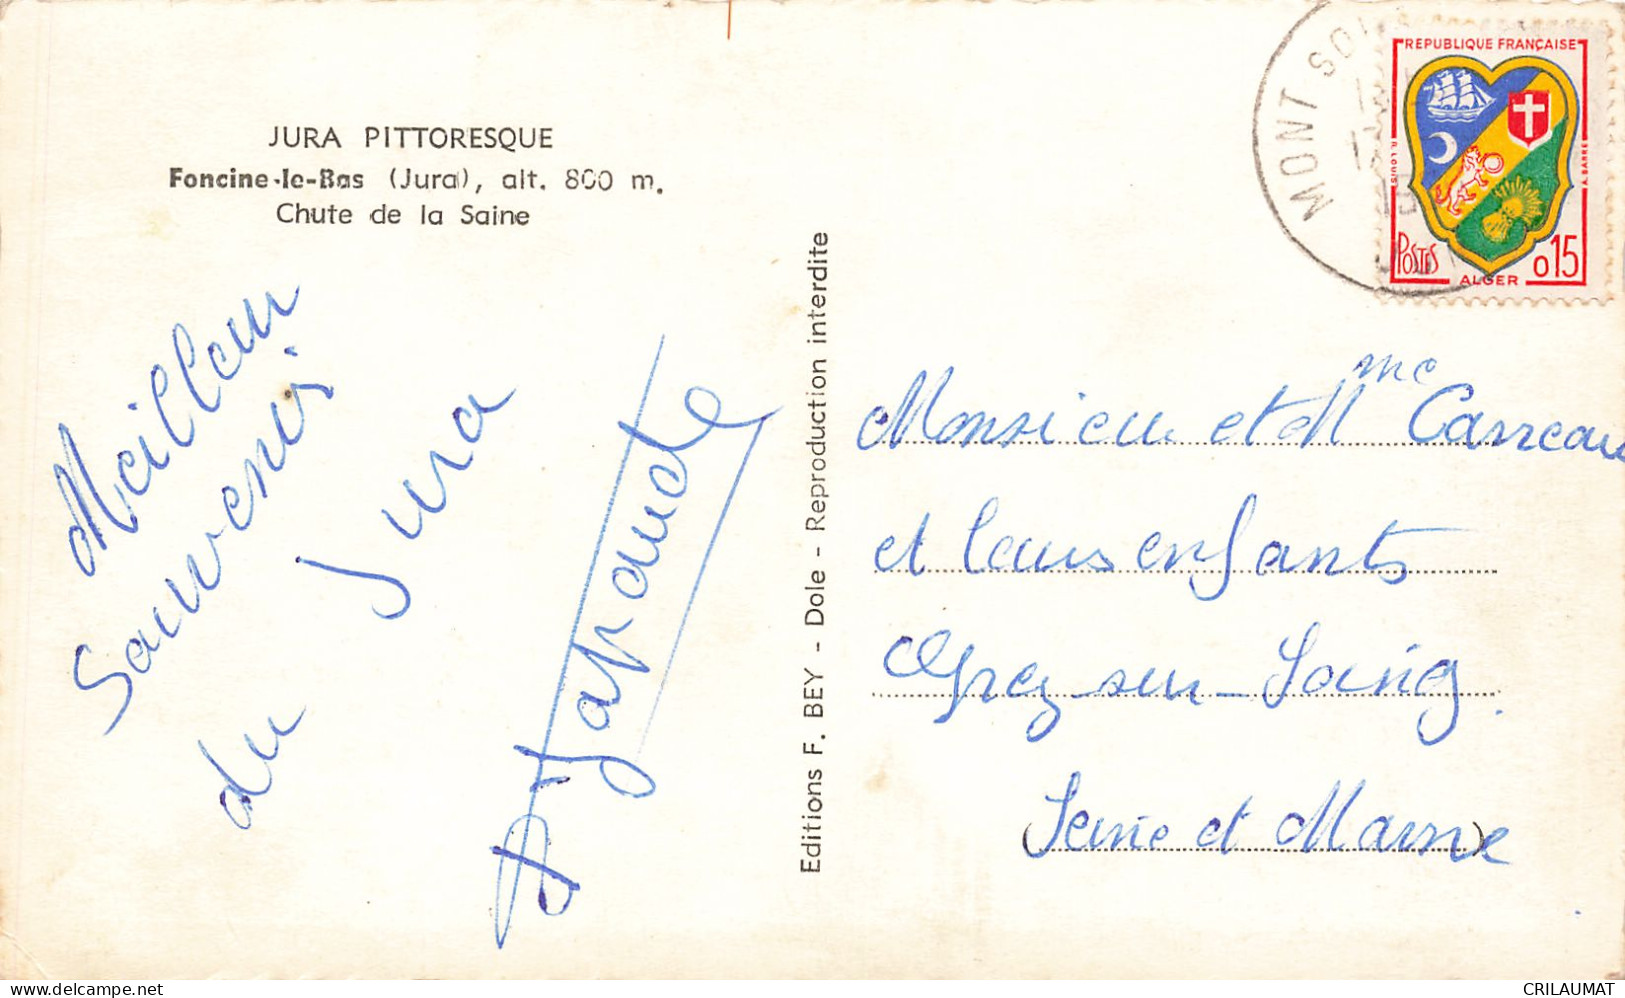 JURA PITTORESQUE
Foncine-le-Bas (Jura), alt. 800 m.
Chute de la Saine
Meilleur
Souvenir
du Jura
Editions F. BEY - Dole - Reproduction interdite
MONT SOU
REPUBLIQUE FRANÇAISE
R. LOUIS
A. BARRE
POSTES
ALGER
0 15
Monsieur et Mme Carreau
et leurs enfants
Grez-sur-Loing
Seine et Marne
CRILAUMAT